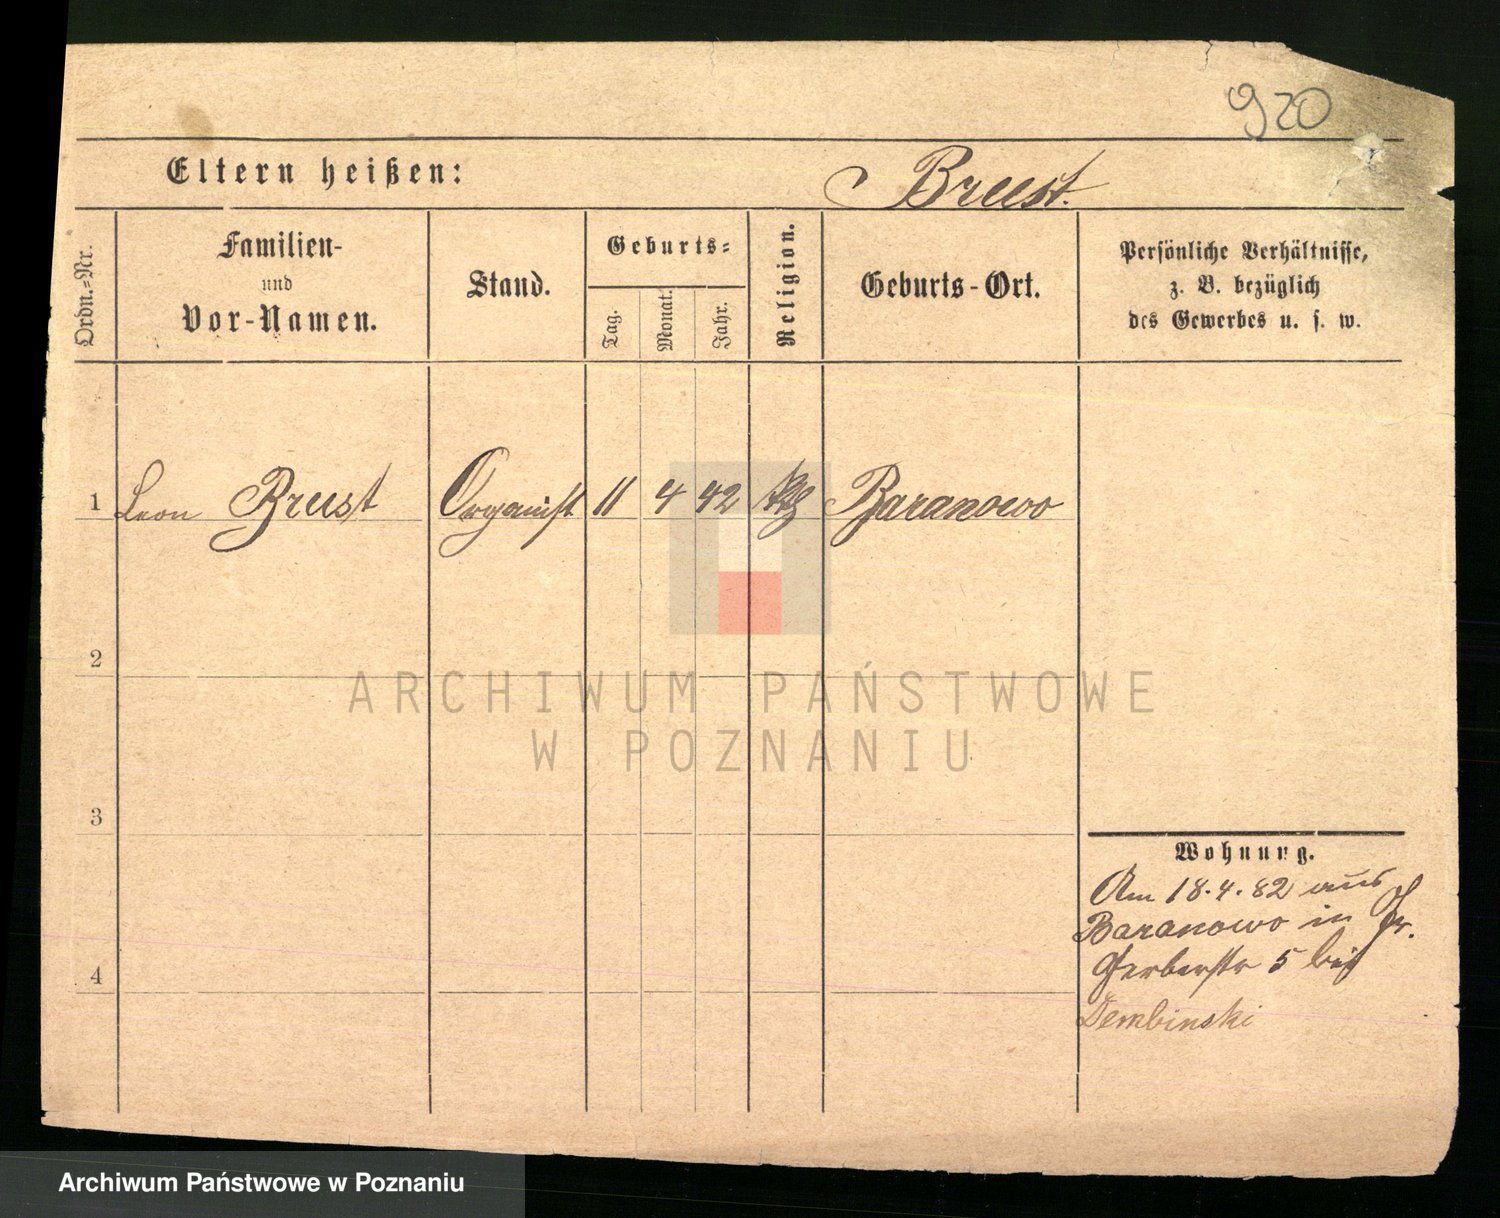 920
Eltern heißen:
Brust.
Ordn.-Nr.
Familien-
und
Vor-Namen.
Stand.
Geburts-
Tag.
Monat.
Jahr.
Religion.
Geburts-Ort.
Persönliche Verhältnisse,
z. B. bezüglich
des Gewerbes u. s. w.
1 Leon Brust Organist 11 4 42 Baranowo
2
ARCHIWUM PAŃSTWOWE
W POZNANIU
3
4
Wohnung.
Am 18.4.82 aus
Baranowo in Gr.
Gerberstr 5 bei
Dembinski
Archiwum Państwowe w Poznaniu